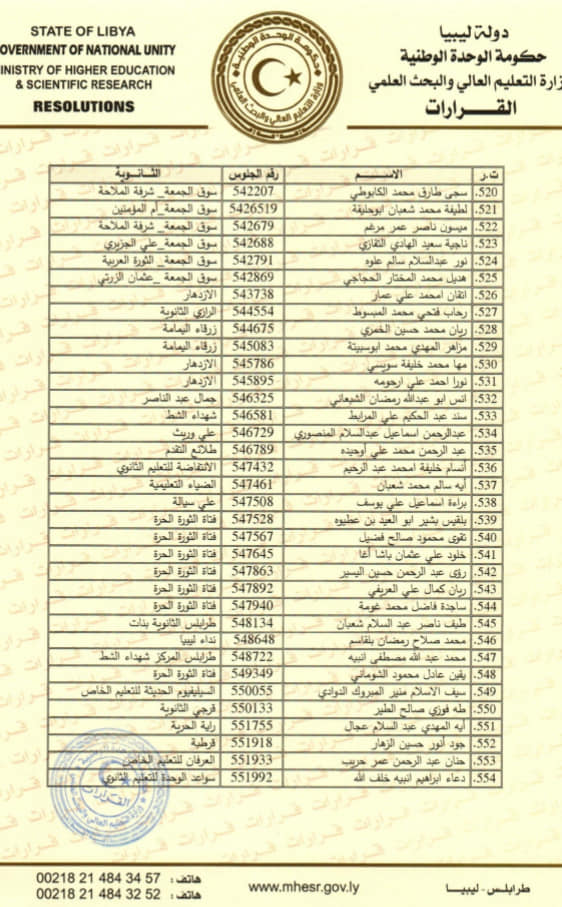 STATE OF LIBYA
OVERNMENT OF NATIONAL UNITY
INISTRY OF HIGHER EDUCATION
& SCIENTIFIC RESEARCH
RESOLUTIONS
دولة ليبيا
حكومة الوحدة الوطنية
زارة التعليم العالي والبحث العلمي
القـــرارات
ت.ر الاســـم رقم الجلوس الثـانـويـة
520. سجى طارق محمد الكابوطي 542207 سوق الجمعة_ شرفة الملاحة
521. لطيفة محمد شعبان ابوحنيفة 5426519 سوق الجمعة_ أم المؤمنين
522. ميسون ناصر عمر مرغم 542679 سوق الجمعة_ شرفة الملاحة
523. ناجية سعيد الهادي التقازي 542688 سوق الجمعة_ علي الجزيري
524. نور عبدالسلام سالم علوه 542791 سوق الجمعة_ الثورة العربية
525. هديل محمد المختار الحجاجي 542869 سوق الجمعة _عثمان الزرتي
526. اتقان امحمد علي عمار 543738 الازدهار
527. رحاب فتحي محمد المبسوط 544554 الرازي الثانوية
528. ريان محمد حسين الخمري 544675 زرقاء اليمامة
529. مزاهر المهدي محمد ابوسبيتة 545083 زرقاء اليمامة
530. مها محمد خليفة سويسي 545786 الازدهار
531. نورا احمد علي ارحومه 545895 الازدهار
532. انس ابو عبدالله رمضان الشيعاني 546325 جمال عبد الناصر
533. سند عبد الحكيم علي المرابط 546581 شهداء الشط
534. عبدالرحمن اسماعيل عبدالسلام المنصوري 546729 علي وريث
535. عبد الرحمن محمد علي أوحيده 546789 طلائع التقدم
536. أنسام خليفة امحمد عبد الرحيم 547432 الانتفاضة للتعليم الثانوي
537. أيه سالم محمد شعبان 547461 الضياء التعليمية
538. براءة اسماعيل علي يوسف 547508 علي سيالة
539. بلقيس بشير ابو العيد بن عطيوه 547528 فتاة الثورة الحرة
540. تقوى محمود صالح فضيل 547567 فتاة الثورة الحرة
541. خلود علي عثمان باشا أغا 547645 فتاة الثورة الحرة
542. رؤى عبد الرحمن حسين اليسير 547863 فتاة الثورة الحرة
543. ريان كمال علي العريفي 547892 فتاة الثورة الحرة
544. ساجدة فاضل محمد غومة 547940 فتاة الثورة الحرة
545. طيف ناصر عبد السلام شعبان 548134 طرابلس الثانوية بنات
546. محمد صلاح رمضان بلقاسم 548648 نداء ليبيا
547. محمد عبد الله مصطفى انبيه 548722 طرابلس المركز شهداء الشط
548. يقين عادل محمود الشوماني 549349 فتاة الثورة الحرة
549. سيف الاسلام منير المبروك الدوادي 550055 السيليفيوم الحديثة للتعليم الخاص
550. طه فوزي صالح الطير 550133 قرجي الثانوية
551. أيه المهدي عبد السلام عجال 551755 راية الحرية
552. جود أنور حسين الزهار 551918 قرطبة
553. حنان عبد الرحمن عمر حريب 551933 العرفان للتعليم الخاص
554. دعاء ابراهيم انبيه خلف الله 551992 سواعد الوحدة للتعليم الثانوي
هاتف: 00218 21 484 34 57
هاتف: 00218 21 484 32 52
www.mhesr.gov.ly
طرابلس - ليبيا